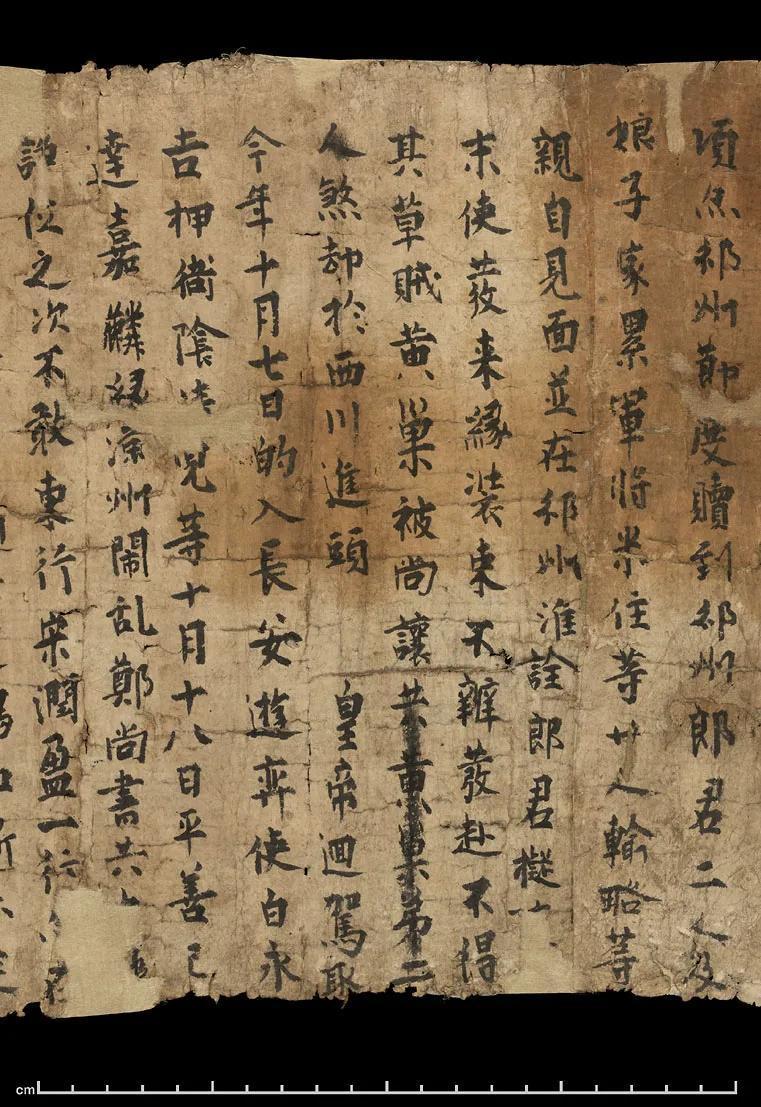 項於邠州節度贖到邠州郎君二人及
娘子家累軍將米住等廿人輸略等
親自見面並在邠州淮詮郎君擬
末使發来緣裝束不辦發赴不得
其草賊黄巢被尚讓共黄巢弟二
人煞却於西川進頭 皇帝迴駕取
今年十月七日的入長安遊弈使白永
吉押衙陰清兒等十月十八日平善已
達嘉麟緣凉州閙乱鄭尚書共
諍位之次不敢東行宋潤盈一行